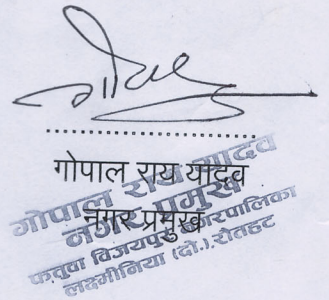 गोपाल
गोपाल राय यादव
नगर प्रमुख
गोपाल राय यादव
नगर प्रमुख
फतुवा विजयपुर नगरपालिका
लक्ष्मीनिया (दो.) रौतहट